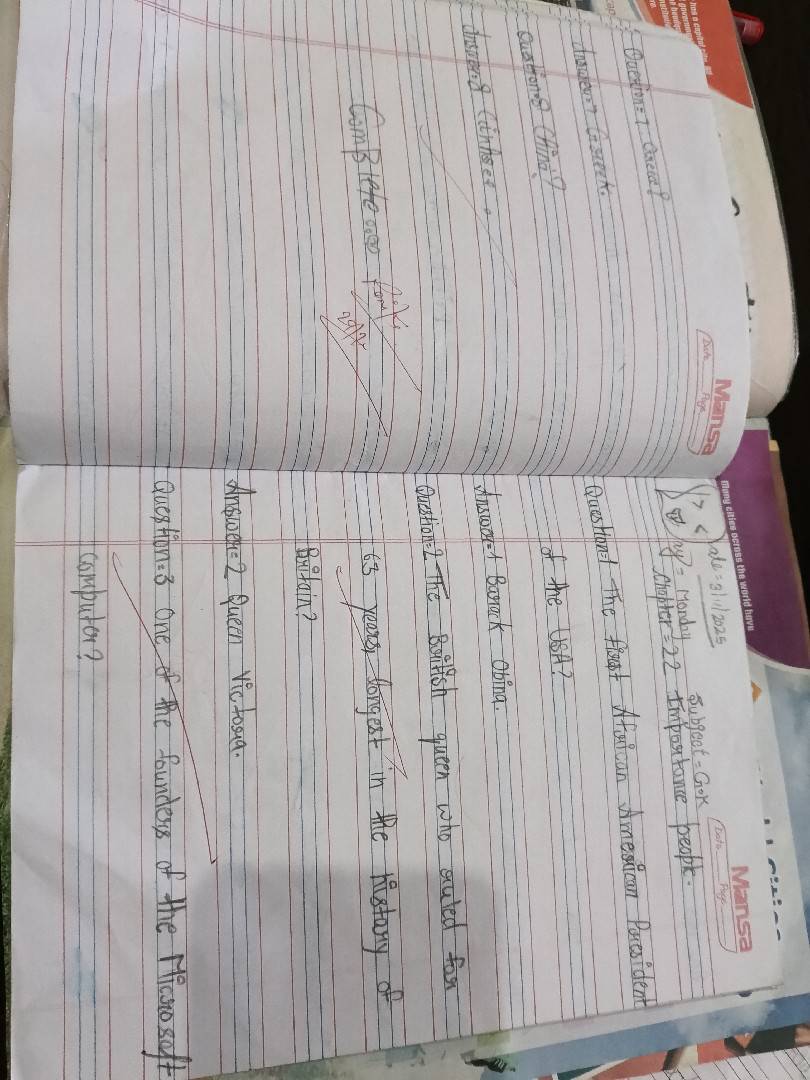 Mansa
Date
Page
Question=7
Answer=7
Question=8 China?
Answer=8
Complete
Mansa
Date
Page
Date=3/11/2025 Subject=G.K
Day=Monday
Chapter=22 Importance people.
Question=1 The first African American President
of the USA?
Answer=1 Barack Obina.
Question=2 The British queen who ruled for
63 years, longest in the history of
Britain?
Answer=2 Queen Victoria.
Question=3 One of the founders of the Microsoft
Computer?
Many cities across the world have
has a capital city.